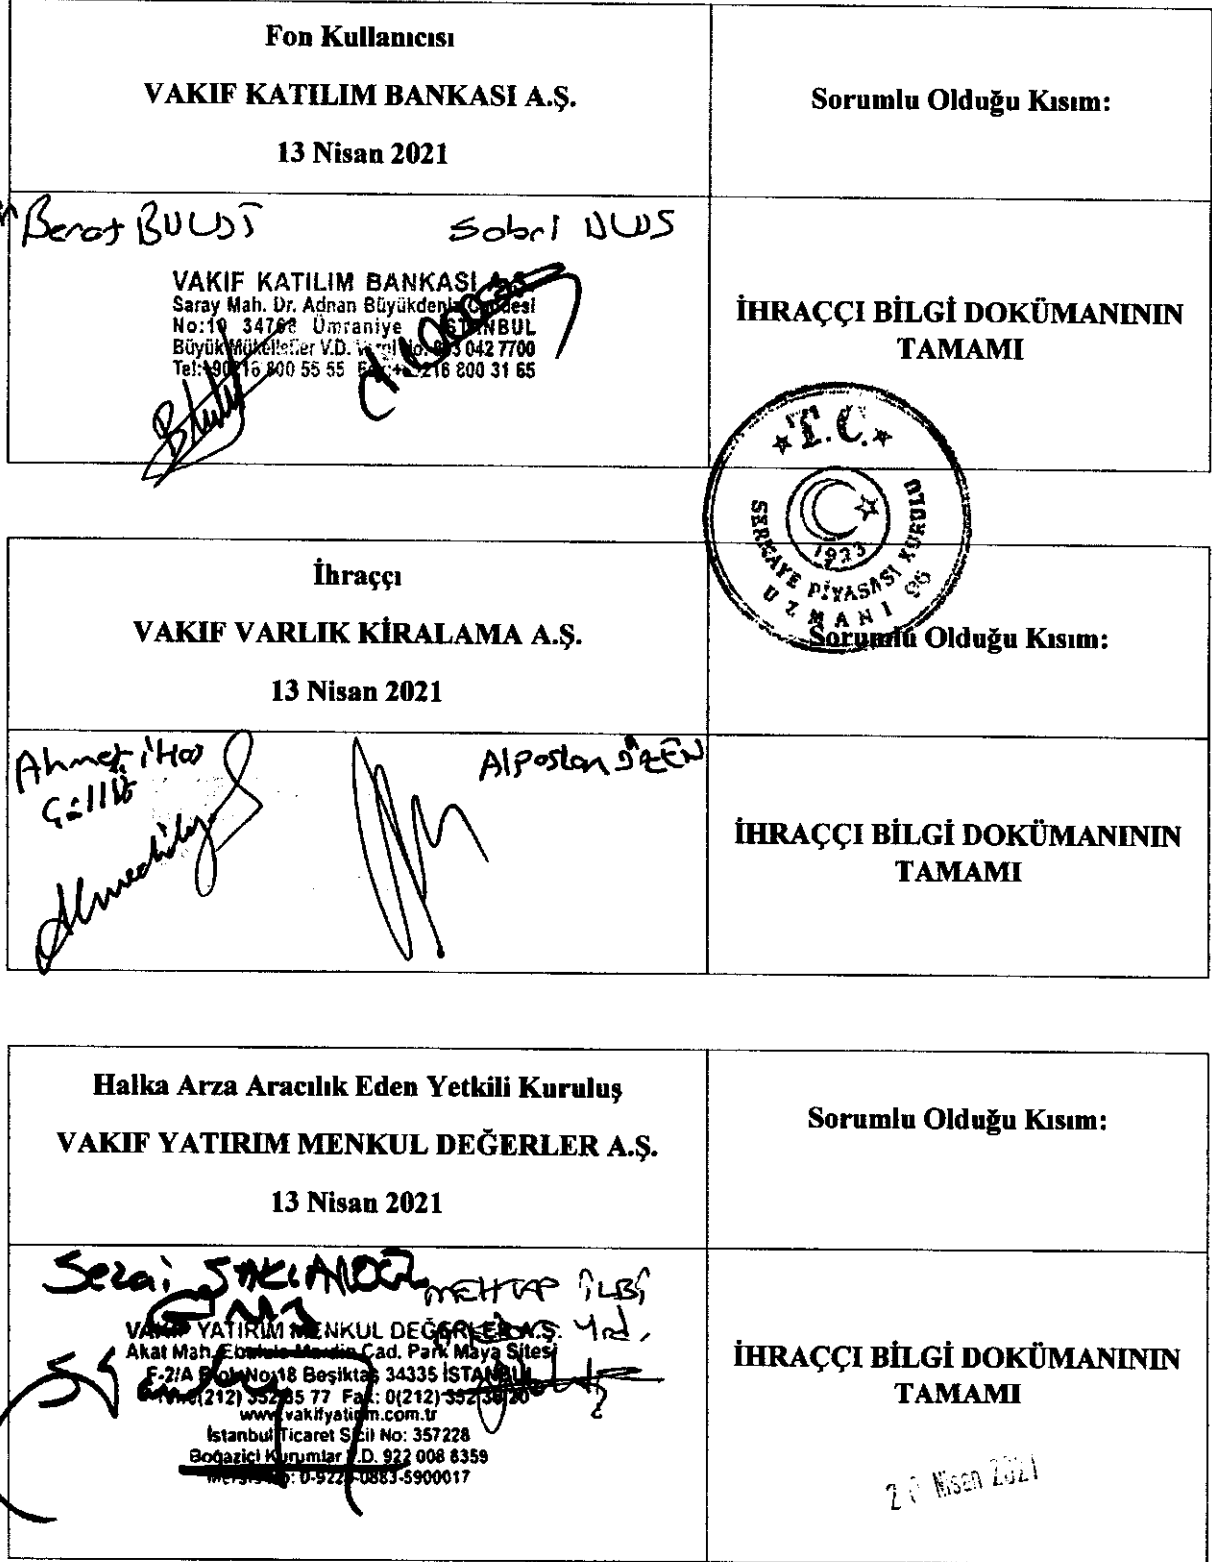 Fon Kullanıcısı
VAKIF KATILIM BANKASI A.Ş.
13 Nisan 2021
Sorumlu Olduğu Kısım:
Berat
Sabri
VAKIF KATILIM BANKASI A.Ş.
Saray Mah. Dr. Adnan Büyükdeniz Caddesi
No:10 34768 Ümraniye İSTANBUL
Büyük Mükellefler V.D. Vergi No: 042 7700
Tel: 800 55 55 216 800 31 65
İHRAÇÇI BİLGİ DOKÜMANININ
TAMAMI
T.C.
SERMAYE PİYASASI KURULU
1923
UZMANI
İhraççı
VAKIF VARLIK KİRALAMA A.Ş.
13 Nisan 2021
Sorumlu Olduğu Kısım:
Ahmet
İHRAÇÇI BİLGİ DOKÜMANININ
TAMAMI
Halka Arza Aracılık Eden Yetkili Kuruluş
VAKIF YATIRIM MENKUL DEĞERLER A.Ş.
13 Nisan 2021
Sorumlu Olduğu Kısım:
Sezai
MEHTAP
Yrd.
VAKIF YATIRIM MENKUL DEĞERLER A.Ş.
Akat Mah. Cad. Park Maya Sitesi
F-2/A Blok No:18 Beşiktaş 34335 İSTANBUL
Fax: 0(212)
www.vakifyatirim.com.tr
İstanbul Ticaret Sicil No: 357228
Boğaziçi Kurumlar V.D. 922 008 8359
İHRAÇÇI BİLGİ DOKÜMANININ
TAMAMI
Nisan 2021